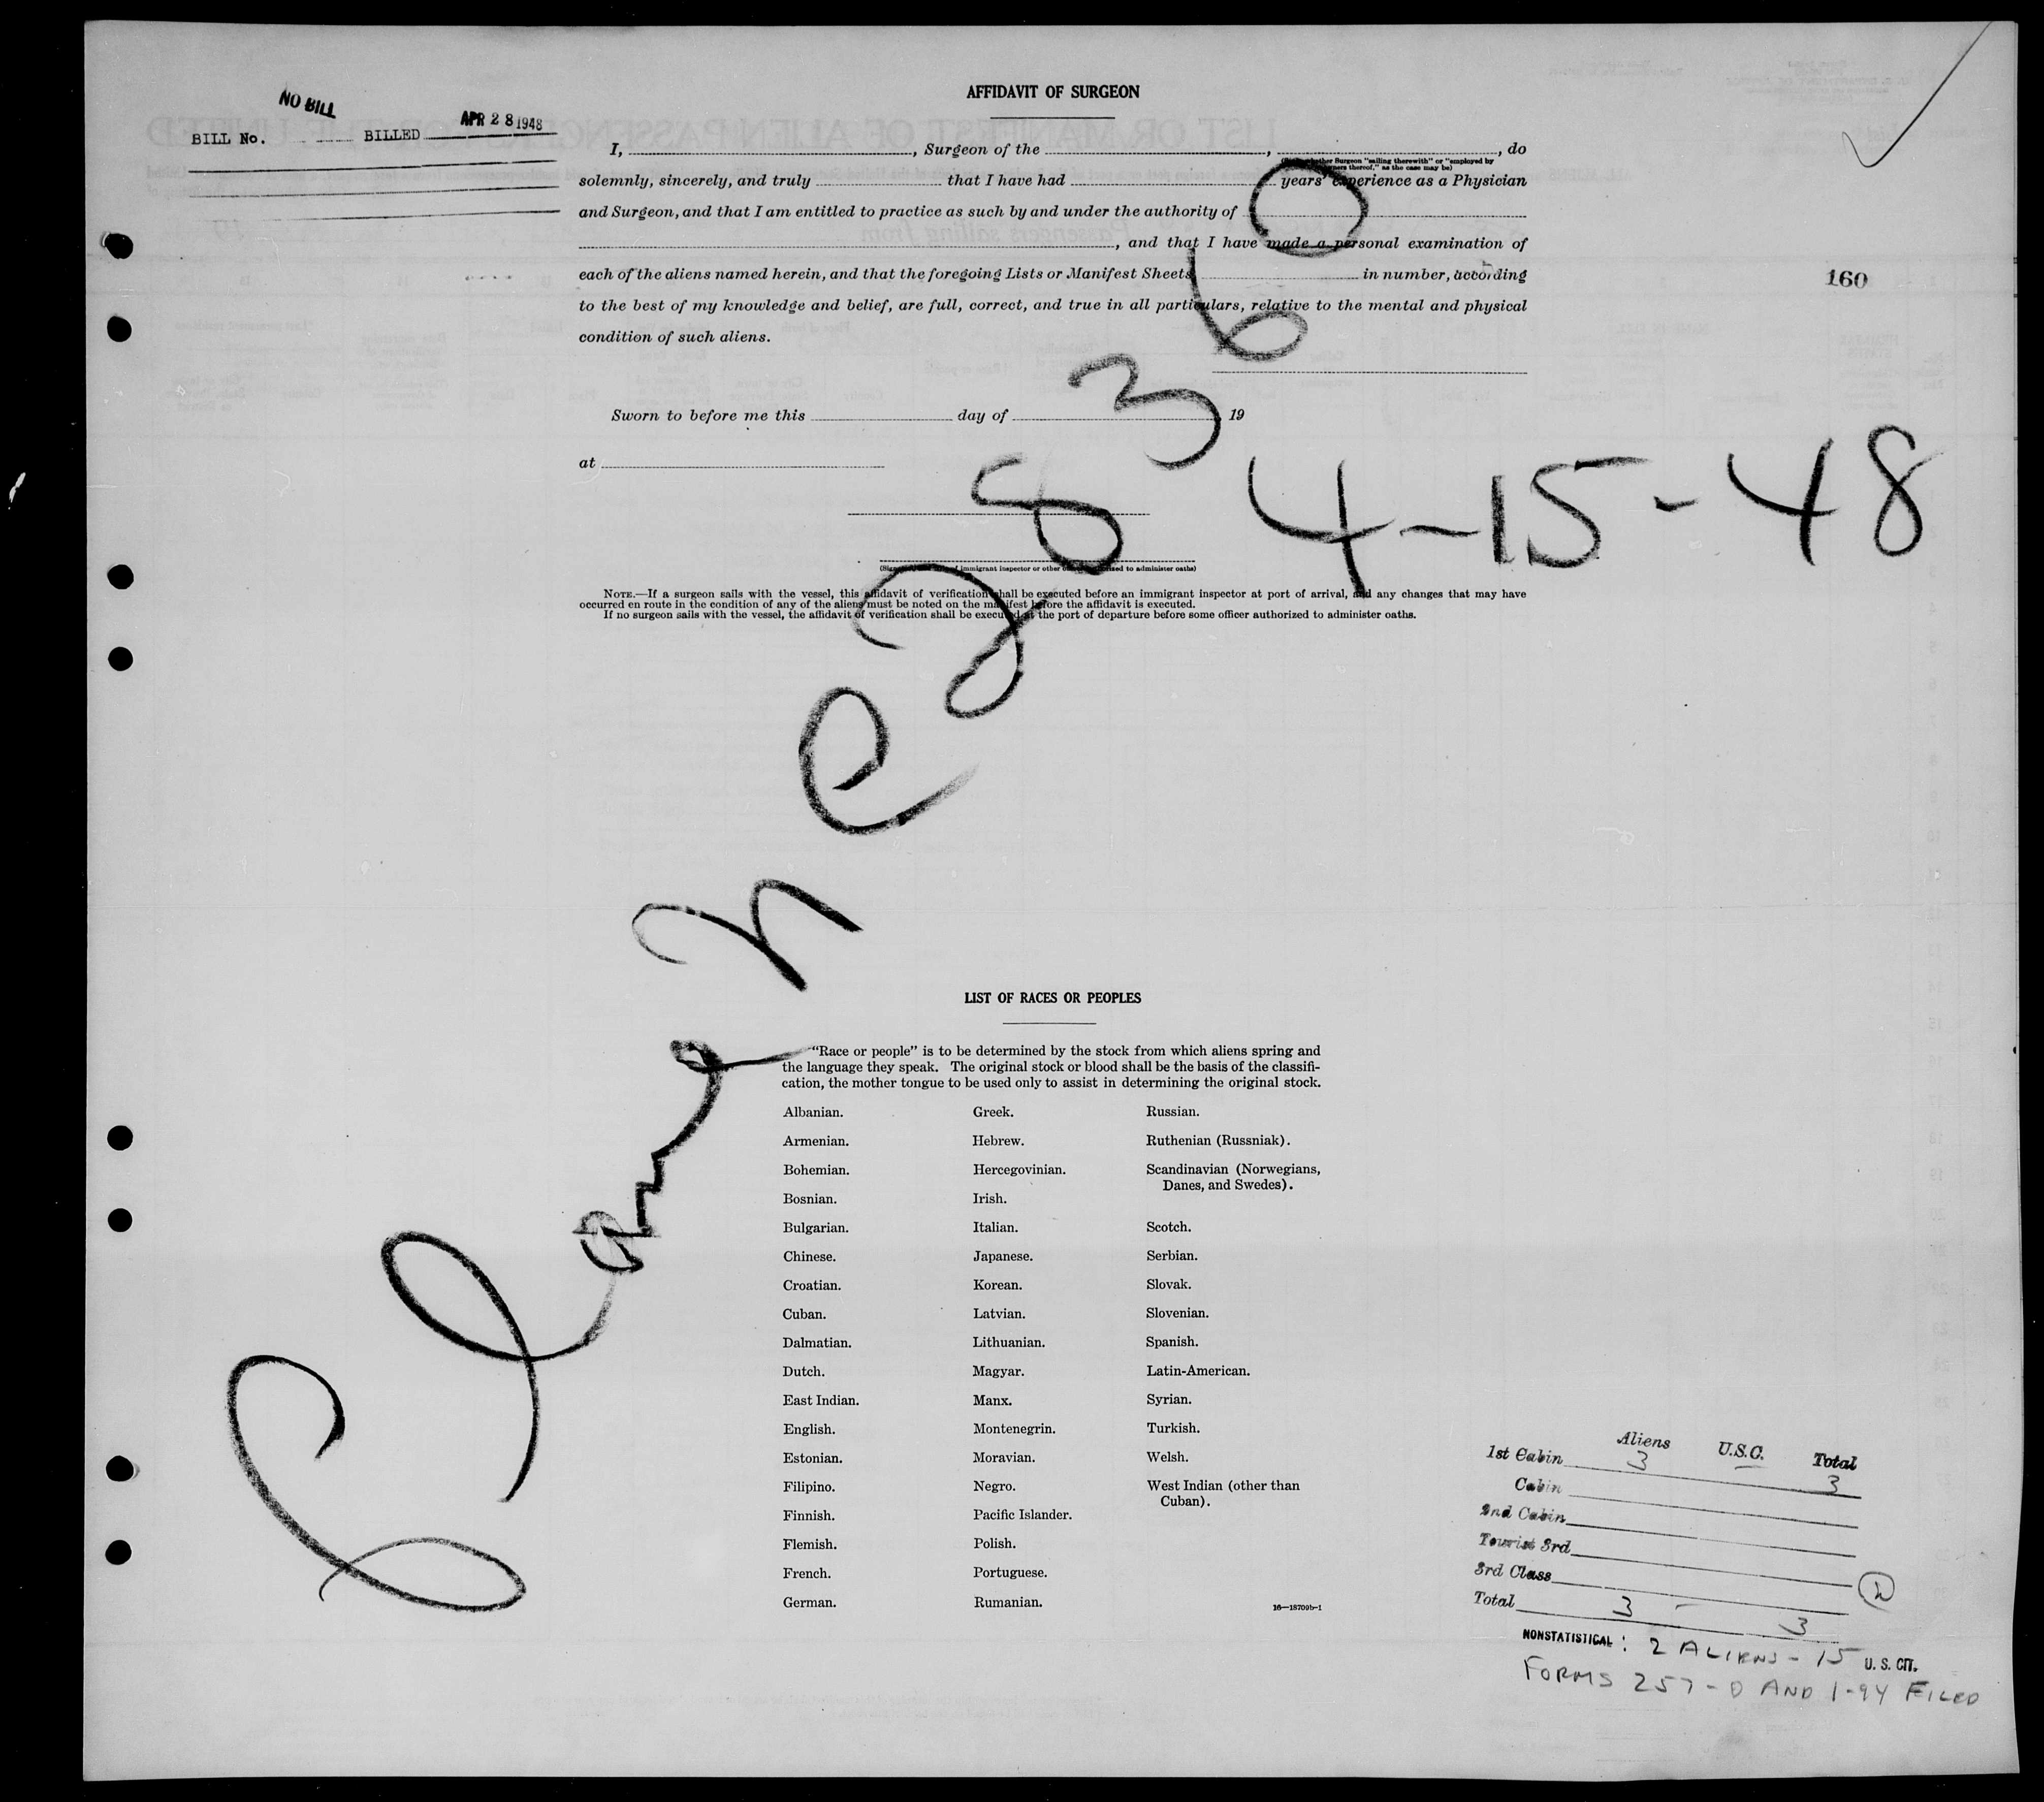 NO BILL
BILL No. BILLED APR 28 1948
AFFIDAVIT OF SURGEON
I, , Surgeon of the , , do
solemnly, sincerely, and truly that I have had years' experience as a Physician
and Surgeon, and that I am entitled to practice as such by and under the authority of
, and that I have made a personal examination of
each of the aliens named herein, and that the foregoing Lists or Manifest Sheets in number, according
to the best of my knowledge and belief, are full, correct, and true in all particulars, relative to the mental and physical
condition of such aliens.
160
Sworn to before me this day of 19
at
4-15-48
immigrant inspector or other to administer oaths)
NOTE.—If a surgeon sails with the vessel, this affidavit of verification shall be executed before an immigrant inspector at port of arrival, and any changes that may have
occurred en route in the condition of any of the aliens must be noted on the manifest before the affidavit is executed.
If no surgeon sails with the vessel, the affidavit of verification shall be executed at the port of departure before some officer authorized to administer oaths.
LIST OF RACES OR PEOPLES
"Race or people" is to be determined by the stock from which aliens spring and
the language they speak. The original stock or blood shall be the basis of the classifi-
cation, the mother tongue to be used only to assist in determining the original stock.
Albanian.
Armenian.
Bohemian.
Bosnian.
Bulgarian.
Chinese.
Croatian.
Cuban.
Dalmatian.
Dutch.
East Indian.
English.
Estonian.
Filipino.
Finnish.
Flemish.
French.
German.
Greek.
Hebrew.
Hercegovinian.
Irish.
Italian.
Japanese.
Korean.
Latvian.
Lithuanian.
Magyar.
Manx.
Montenegrin.
Moravian.
Negro.
Pacific Islander.
Polish.
Portuguese.
Rumanian.
Russian.
Ruthenian (Russniak).
Scandinavian (Norwegians,
Danes, and Swedes).
Scotch.
Serbian.
Slovak.
Slovenian.
Spanish.
Latin-American.
Syrian.
Turkish.
Welsh.
West Indian (other than
Cuban).
16—18709b-1
Aliens U.S.C. Total
1st Cabin 3 — 3
Cabin
2nd Cabin
Tourist 3rd
3rd Class
Total 3 — 3
NONSTATISTICAL: 2 ALIENS - 15 U. S. CIT.
FORMS 257-D AND I-94 FILED